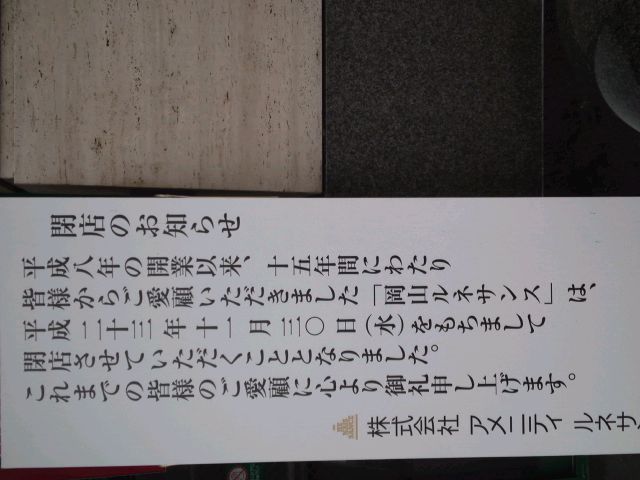 閉店のお知らせ
平成八年の開業以来、十五年間にわたり
皆様からご愛顧いただきました「岡山ルネサンス」は、
平成二十三年十一月三〇日(水)をもちまして
閉店させていただくこととなりました。
これまでの皆様のご愛顧に心より御礼申し上げます。
株式会社 アメーミティ ルネサ